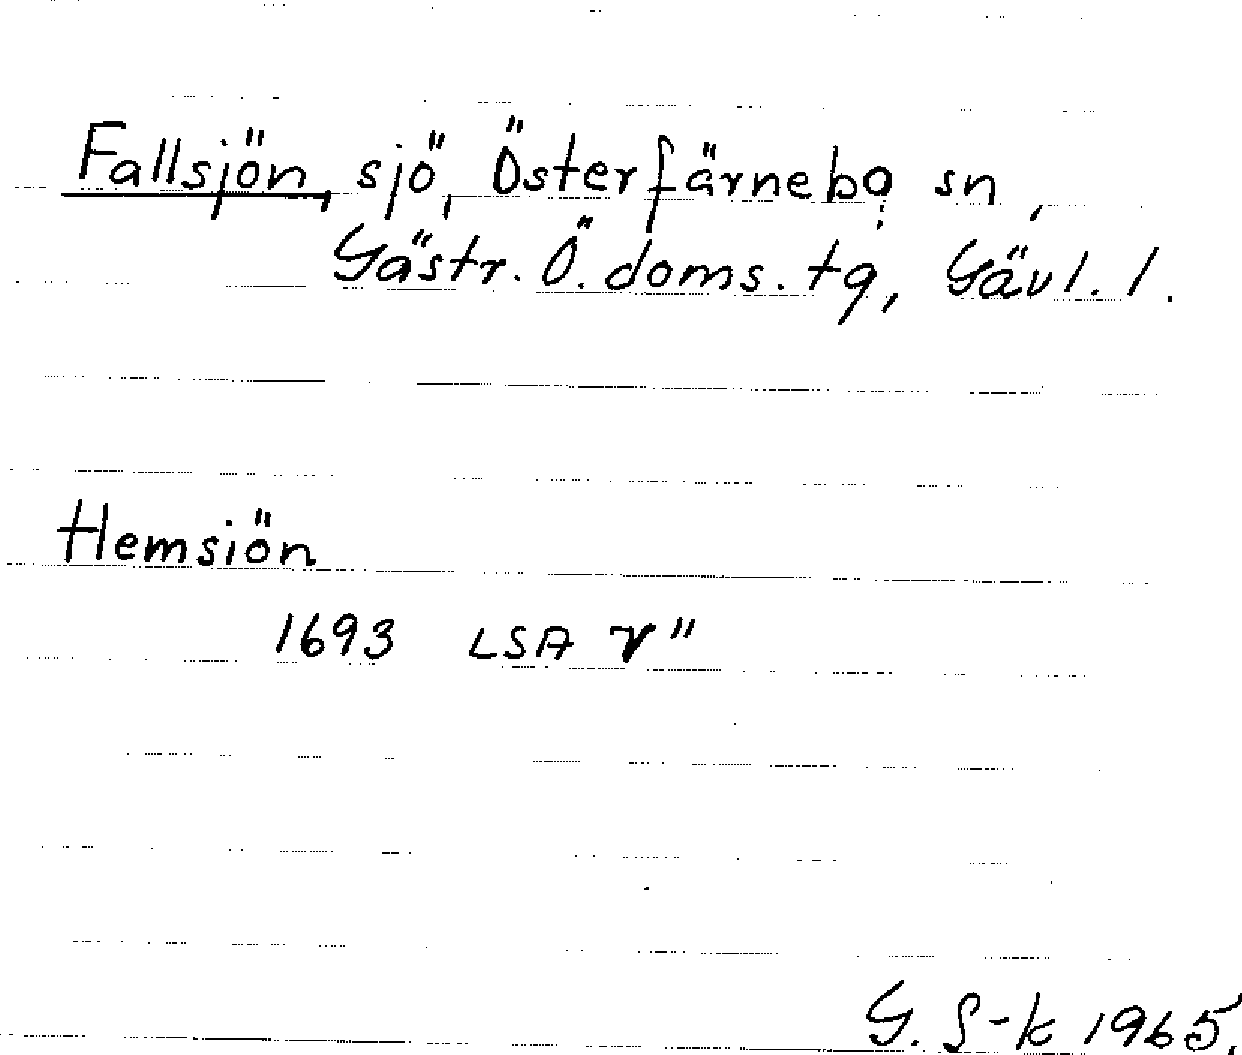 Fallsjön, sjö, Österfärnebo sn,
Gästr. Ö. doms. tg, Gävl. l.
Hemsiön
1693 LSA V"
G. S-k 1965.